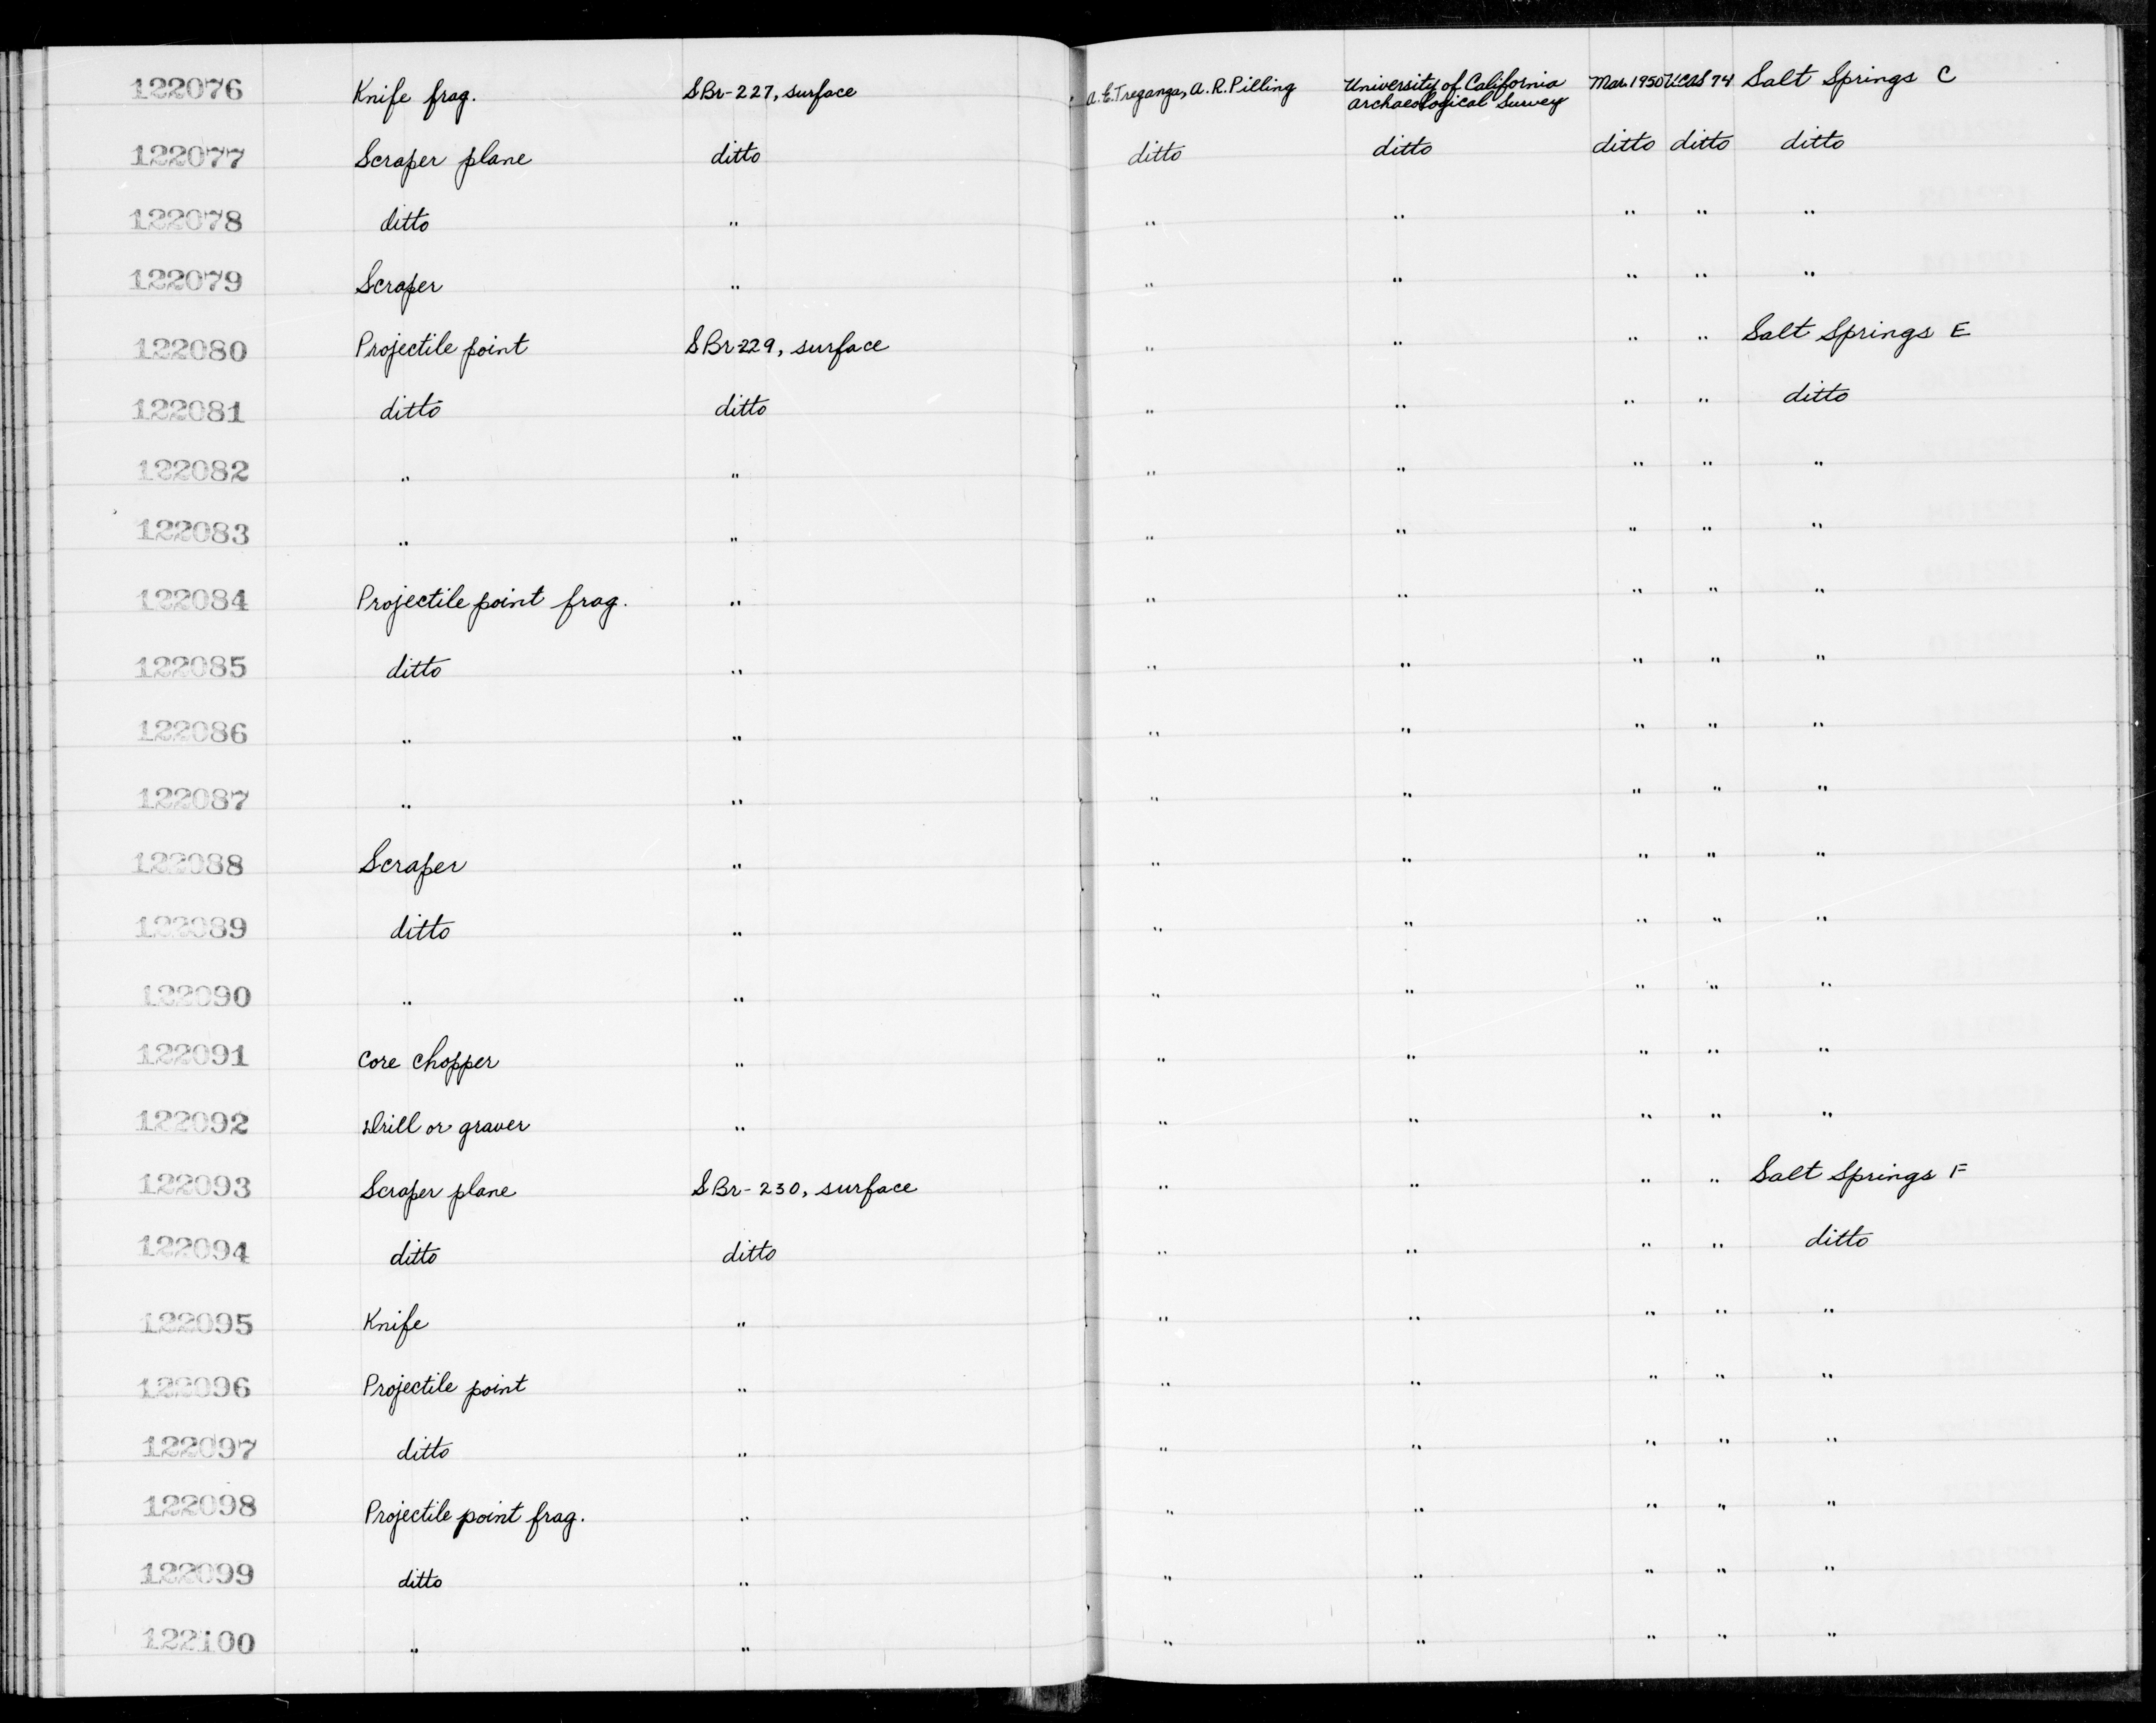 122076 Knife frag. SBr-227, surface A.E.Treganza, A.R.Pilling University of California Archaeological Survey Mar. 1950 UCAS 74 Salt Springs C
122077 Scraper plane ditto ditto ditto ditto ditto ditto
122078 ditto " " " " " "
122079 Scraper " " " " " "
122080 Projectile point SBr-229, surface " " " " Salt Springs E
122081 ditto ditto " " " " ditto
122082 " " " " " " "
122083 " " " " " " "
122084 Projectile point frag. " " " " " "
122085 ditto " " " " " "
122086 " " " " " " "
122087 " " " " " " "
122088 Scraper " " " " " "
122089 ditto " " " " " "
122090 " " " " " " "
122091 Core chopper " " " " " "
122092 Drill or graver " " " " " "
122093 Scraper plane SBr-230, surface " " " " Salt Springs F
122094 ditto ditto " " " " ditto
122095 Knife " " " " " "
122096 Projectile point " " " " " "
122097 ditto " " " " " "
122098 Projectile point frag. " " " " " "
122099 ditto " " " " " "
122100 " " " " " " "